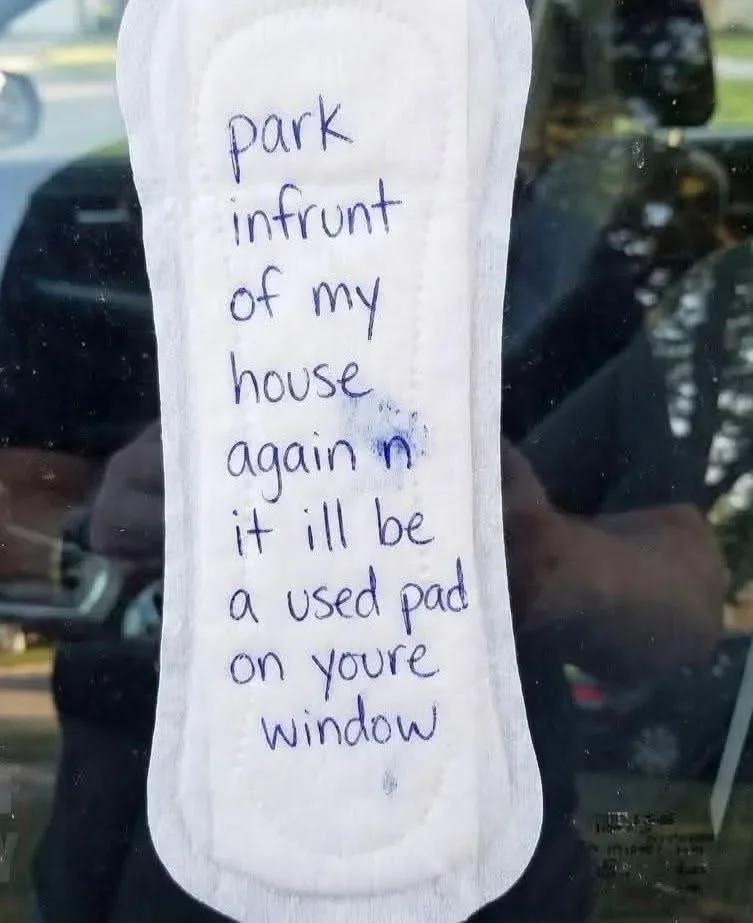 park
infrunt
of my
house
again n
it ill be
a used pad
on youre
window